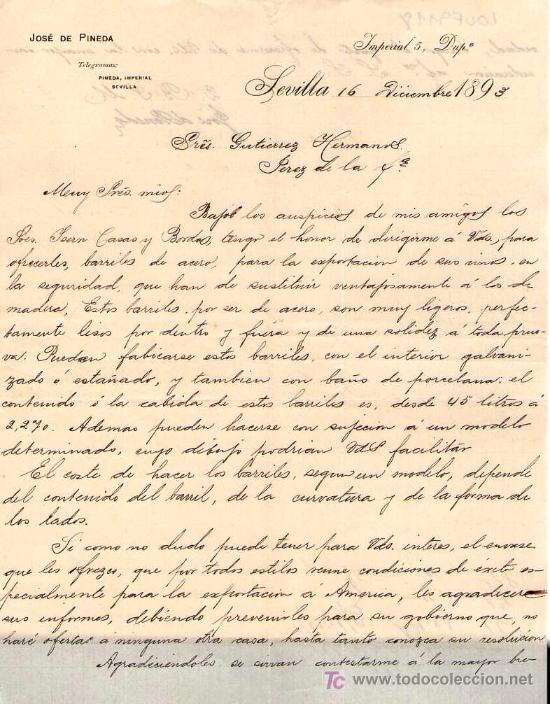 JOSÉ DE PINEDA
Telegramas:
PINEDA, IMPERIAL
SEVILLA
Imperial 5, Dupº
Sevilla 16 Diciembre 1893
Sres. Gutierrez Hermanos
Jerez de la Fª
Muy Sres. mios:
Bajo los auspicios de mis amigos los
Sres. Isern Casas y Bordas, tengo el honor de dirigirme á Vds, para
ofrecerles, barriles de acero, para la exportacion de sus vinos, en
la seguridad, que han de sustituir ventajosamente á los de
madera, Estos barriles, por ser de acero, son muy ligeros, perfec-
tamente lisos por dentro y fuera y de una solidez á toda prue-
va. Puedan fabricarse estos barriles, con el interior galvani-
zado ó estañado, y tambien con baño de porcelana; el
contenido ó la cabida de estos barriles es, desde 45 litros á
2,270. Ademas pueden hacerse con sujeción á un modelo
determinado, cuyo dibujo podrian Vds facilitar
El coste de hacer los barriles, segun un modelo, depende
del contenido del barril, de la curvatura y de la forma de
los lados.
Si como no dudo puede tener para Vds. interes, el envase
que les ofrezco, que por todos estilos reune condiciones de exito es-
pecialmente para la exportación a America, les agradeceré
sus informes, debiendo prevenirles para su gobierno que, no
haré ofertas á ninguna otra casa, hasta tanto conozca su resolucion
Agradiciendoles se sirvan contestarme á la mayor bre-
TC todocoleccion.net
www.todocoleccion.net